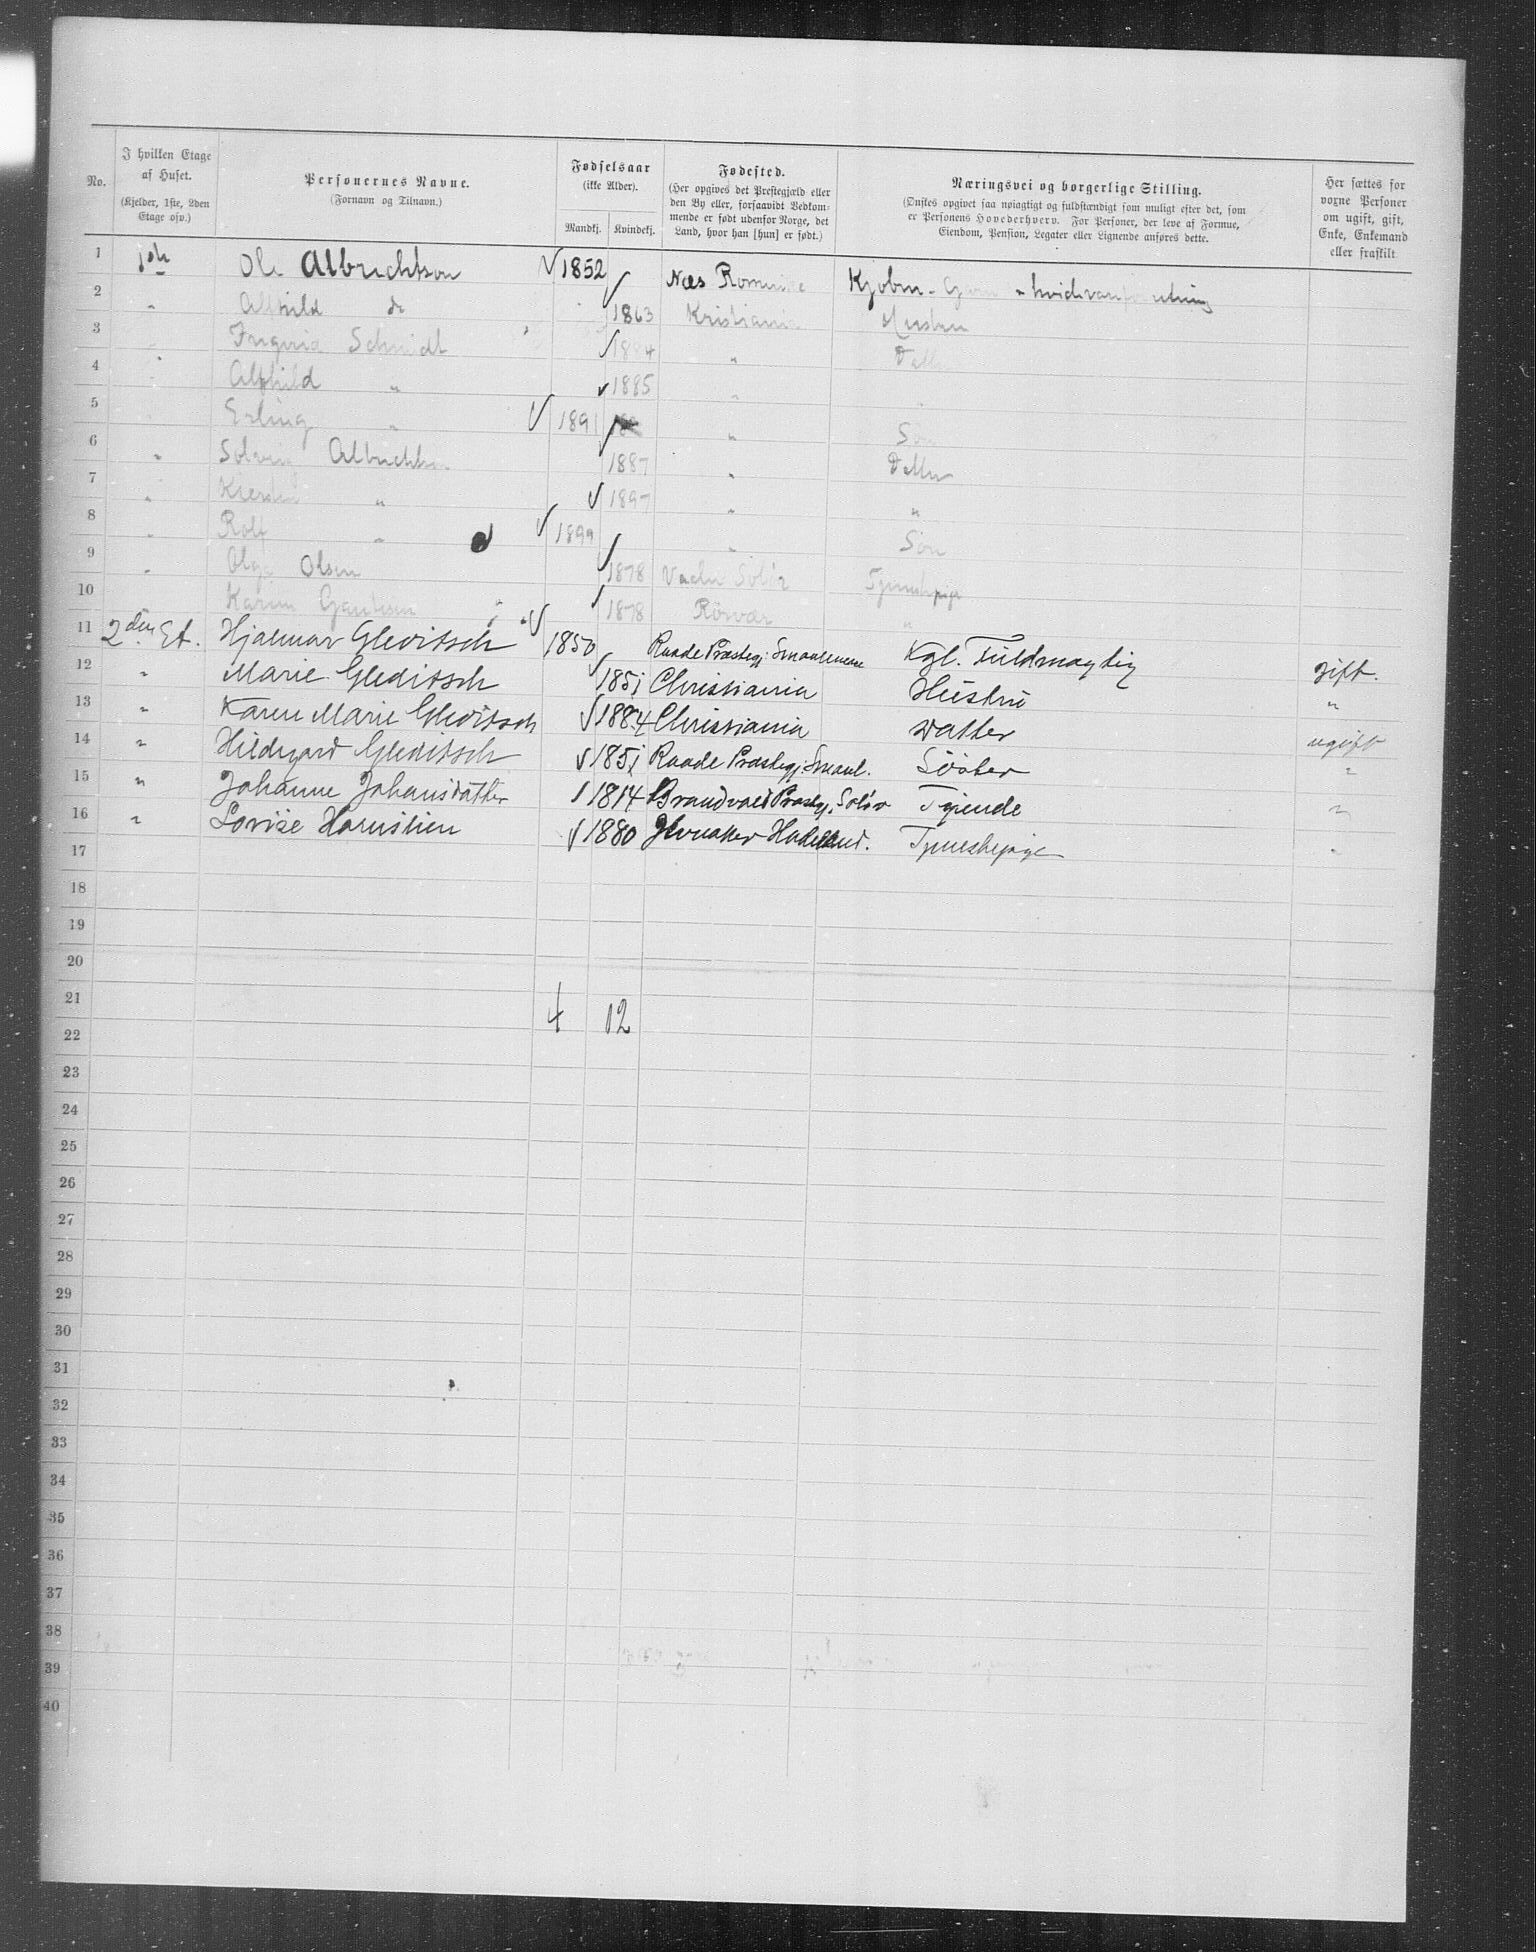 No.
I hvilken Etage af Huset.
(Kjelder, 1ste, 2den Etage osv.)
Personernes Navne.
(Fornavn og Tilnavn.)
Fødselsaar
(ikke Alder).
Mandkj. Kvindekj.
Fødested.
(Her opgives det Prestegjæld eller den By eller, forsaavidt Vedkommende er født udenfor Norge, det Land, hvor han [hun] er født.)
Næringsvei og borgerlige Stilling.
(Ønskes opgivet saa nøiagtigt og fuldstændigt som muligt efter det, som er Personens Hovederhverv. For Personer, der leve af Formue, Eiendom, Pension, Legater eller Lignende anføres dette.
Her sættes for voxne Personer om ugift, gift, Enke, Enkemand eller fraskilt
1 Ole Albrechtson 1852 Næs Kjøbm.
2 " Alfhild do 1863 Kristiania
3 Schmidt 1884 "
4 " Alfhild " 1885 "
5 Erling " 1891 " Søn
6 " Albrechtson 1887 " Datter
7 " " 1897 " "
8 Rolf " 1899 " Søn
9 " Olga Olsen 1878 Solør Tjenestepige
10 Karen 1878 "
11 2den Et. Hjalmar Gleditsch 1850 Raade Præstegj. Kgl. Fuldmægtig gift.
12 " Marie Gleditsch 1851 Christiania Hustru "
13 " Karen Marie Gleditsch 1884 Christiania Datter ugift
14 " Hildegard Gleditsch 1851 Raade Præstegj. Smaal. Søster "
15 " Johanne Johansdatter 1814 Brandvold Præstgj. Solør Tjenende "
16 " Lovise Hornslien 1880 Jevnaker Hadeland. Tjenestepige "
17
18
19
20
21
4 12
22
23
24
25
26
27
28
29
30
31
32
33
34
35
36
37
38
39
40